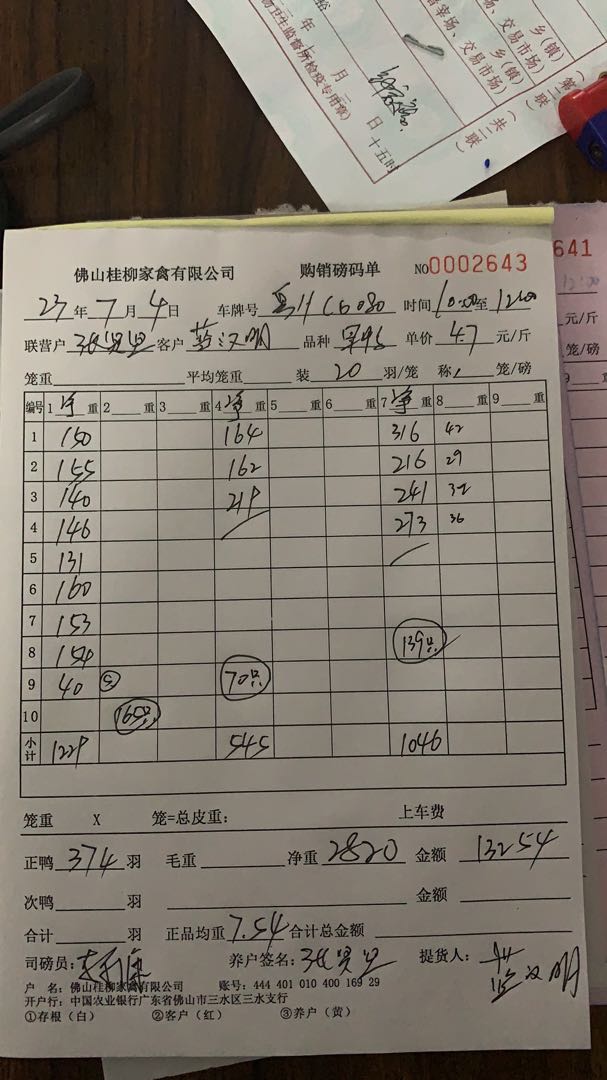 物卫生监督所检疫专用章)
年 七 月 元 日 十五时
宰场、交易市场)
乡(镇)
(共二联)
641
元/斤
笼/磅
佛山桂柳家禽有限公司 购销磅码单 NO0002643
23年7月4日 车牌号 时间10:00至12:00
联营户 客户 品种 单价4.7元/斤
笼重 平均笼重 装20羽/笼 称 笼/磅
编号 1净重 2重 3重 4净重 5重 6重 7净重 8重 9重
1 150 164 316 42
2 155 162 216 29
3 140 219 241 32
4 146 273 36
5 131
6 160
7 153
8 154 139只
9 40 ⑤ 70只
10 165只
小计 1229 545 1046
笼重 X 笼=总皮重: 上车费
正鸭374羽 毛重 净重2820 金额13254
次鸭 羽 金额
合计 羽 正品均重7.54合计总金额
司磅员: 养户签名: 提货人:
户 名: 佛山桂柳家禽有限公司 账号: 444 401 010 400 169 29
开户行: 中国农业银行广东省佛山市三水区三水支行
①存根(白) ②客户(红) ③养户(黄)